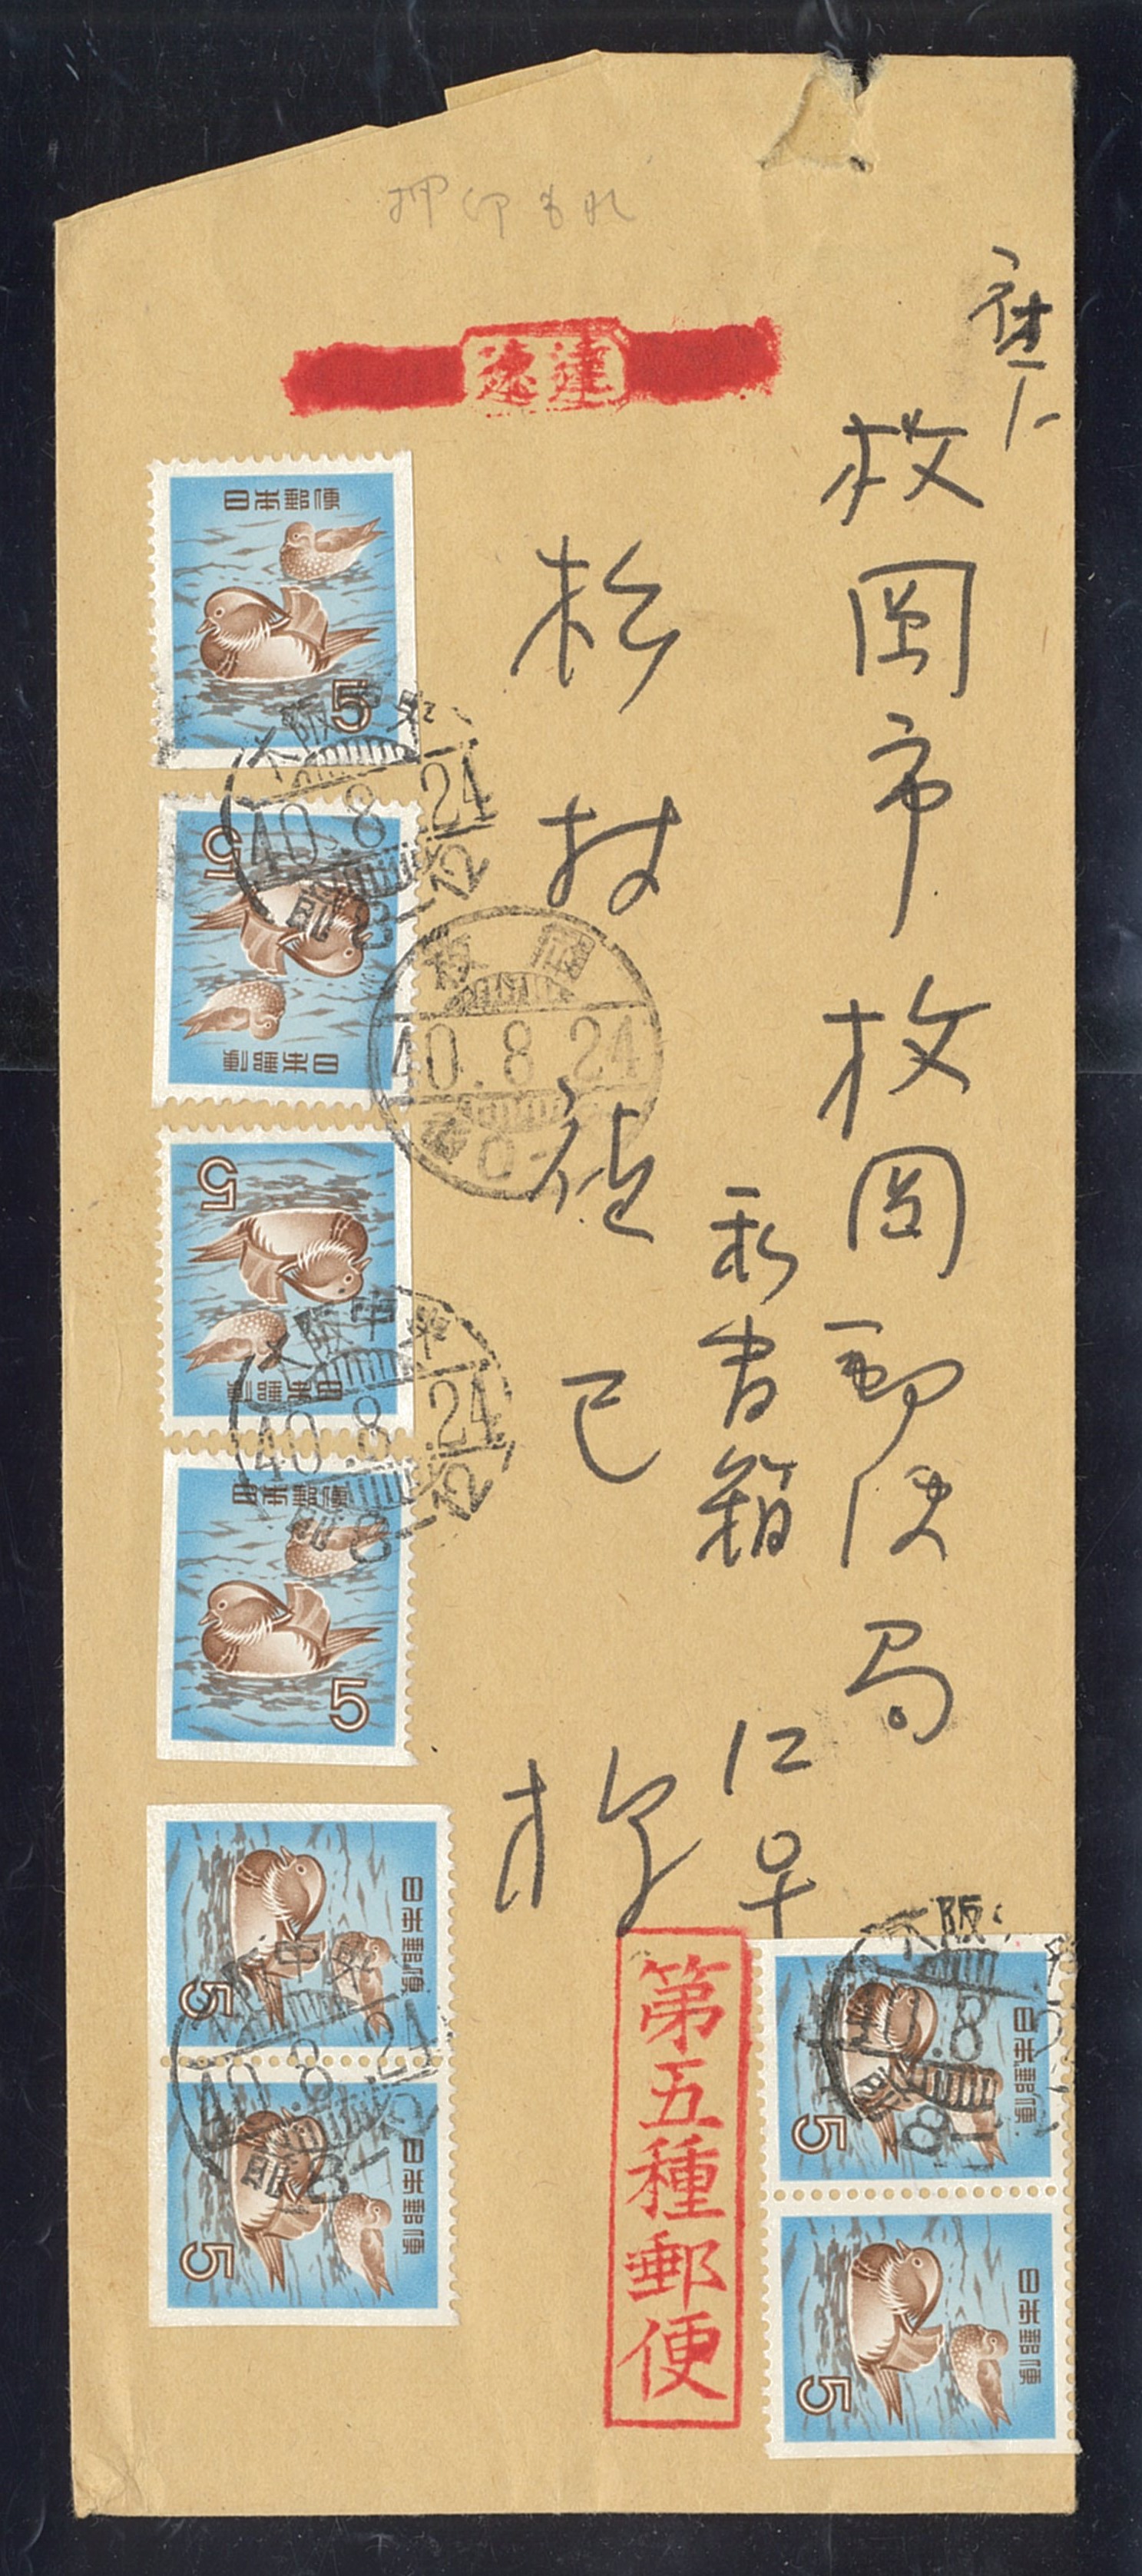 速達
枚岡市枚岡郵便局
私書箱
仁号
松村
様
第五種郵便
日本郵便
5
日本郵便
5
日本郵便
5
日本郵便
5
日本郵便
5
日本郵便
5
日本郵便
5
日本郵便
5
大阪中央
40.8.24
前8-12
枚岡
40.8.24
大阪中央
40.8.24
前8-12
中央
40.8.24
前8-12
大阪